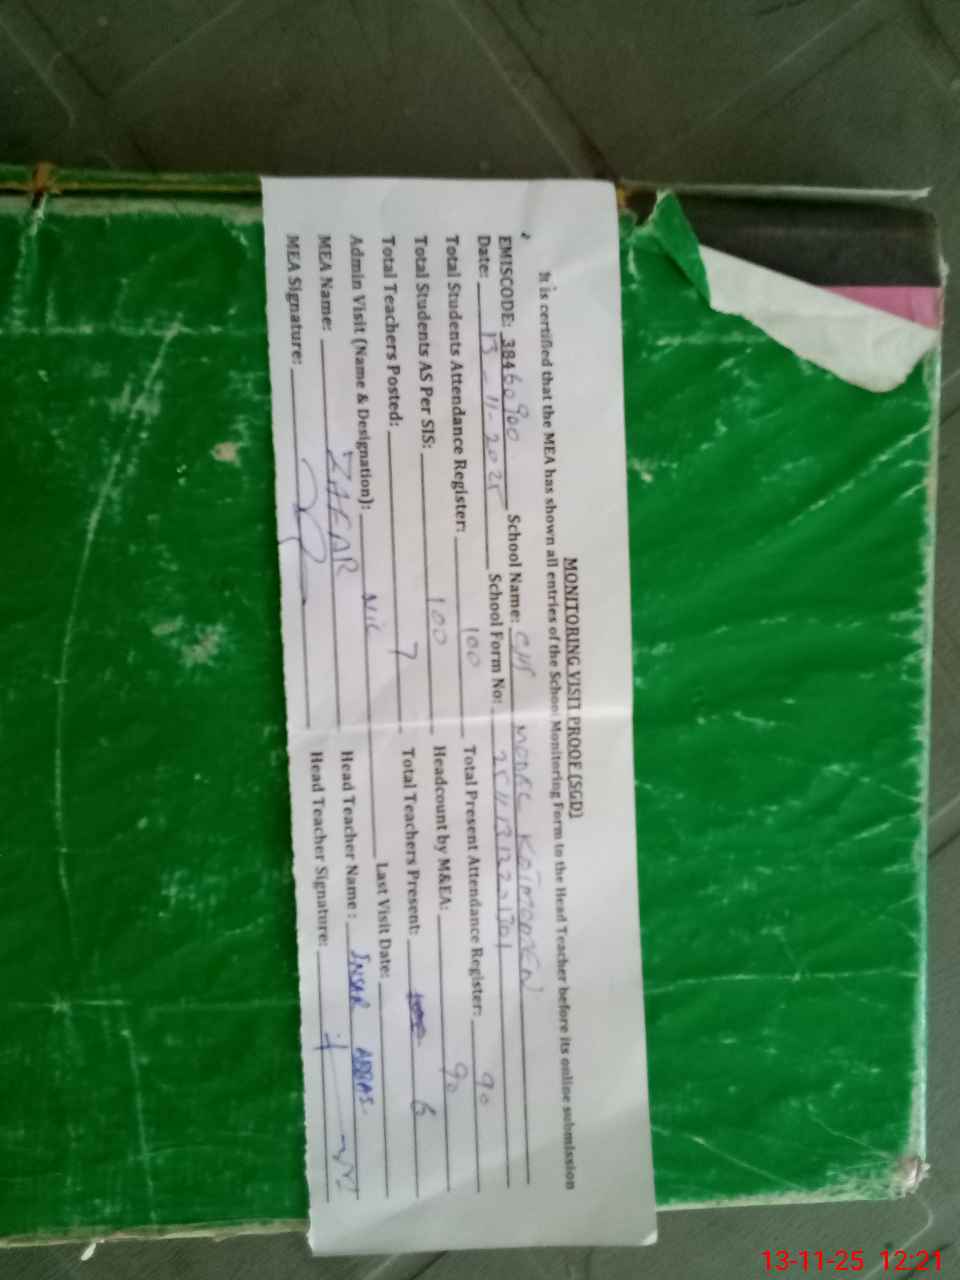 MONITORING VISIT PROOF (SGD)
It is certified that the MEA has shown all entries of the School Monitoring Form to the Head Teacher before its online submission
EMISCODE: 38460900 School Name: CM MODEL
Date: 13-11-2025 School Form No:
Total Students Attendance Register: 100 Total Present Attendance Register: 90
Total Students AS Per SIS: 100 Headcount by M&EA: 90
Total Teachers Posted: 7 Total Teachers Present: 6
Admin Visit (Name & Designation): Nil Last Visit Date:
MEA Name: ZAFAR Head Teacher Name: ABBAS
MEA Signature: Head Teacher Signature:
13-11-25 12:21